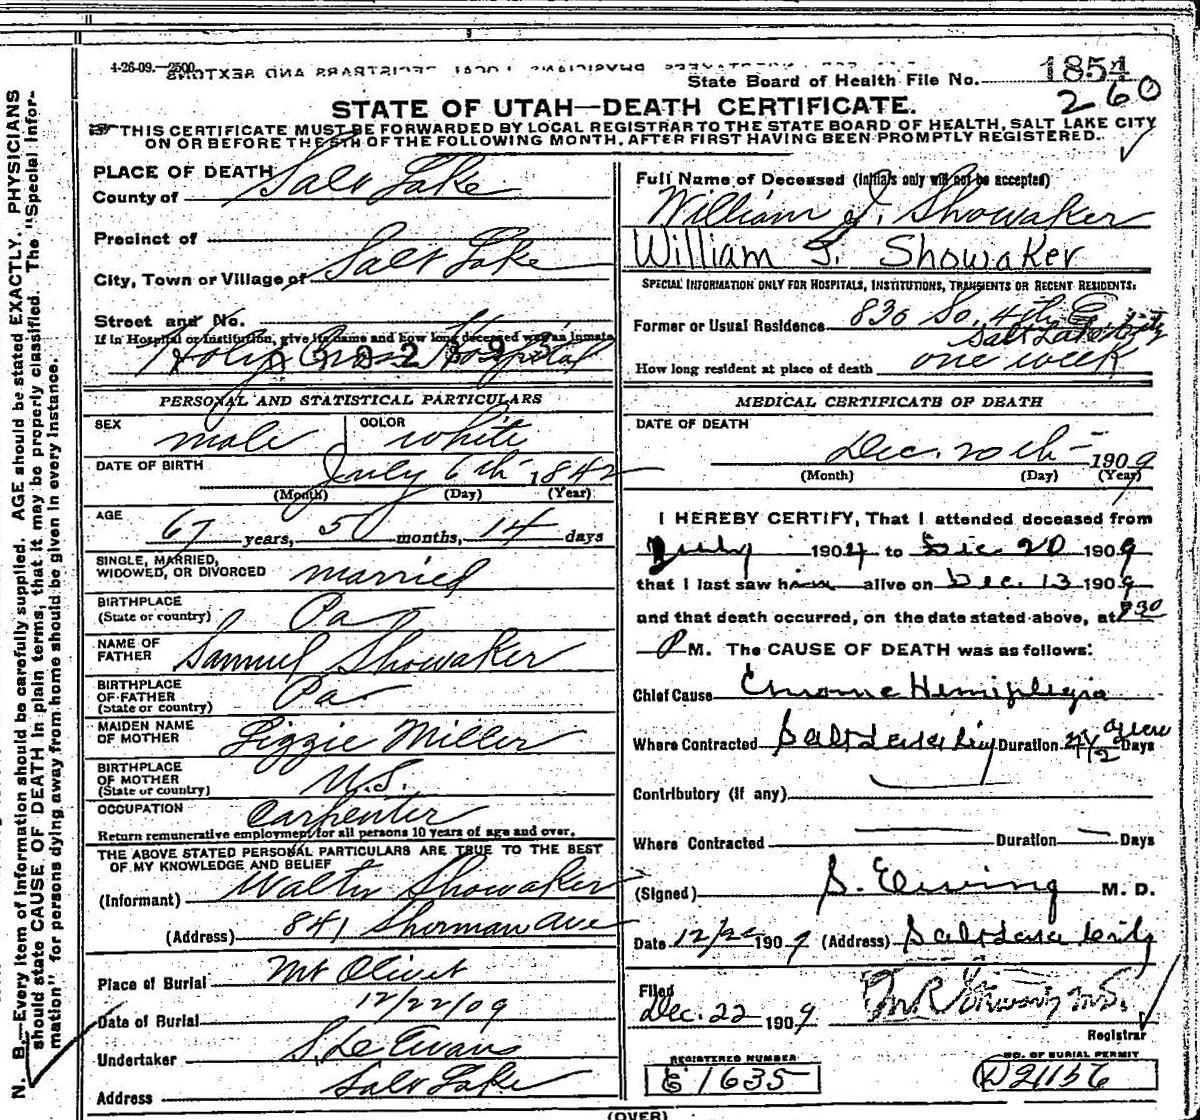 4-26-09.—2500
State Board of Health File No. 1854
260
STATE OF UTAH—DEATH CERTIFICATE.
THIS CERTIFICATE MUST BE FORWARDED BY LOCAL REGISTRAR TO THE STATE BOARD OF HEALTH, SALT LAKE CITY
ON OR BEFORE THE 5TH OF THE FOLLOWING MONTH, AFTER FIRST HAVING BEEN PROMPTLY REGISTERED.
PLACE OF DEATH
County of Salt Lake
Precinct of
City, Town or Village of Salt Lake
Street and No.
If in Hospital or Institution, give its name and how long deceased was an inmate
Holy Cross Hospital
PERSONAL AND STATISTICAL PARTICULARS
SEX male COLOR white
DATE OF BIRTH July 6th 1842
(Month) (Day) (Year)
AGE 67 years, 5 months, 14 days
SINGLE, MARRIED,
WIDOWED, OR DIVORCED married
BIRTHPLACE
(State or country) Pa
NAME OF
FATHER Samuel Showaker
BIRTHPLACE
OF FATHER
(State or country) Pa
MAIDEN NAME
OF MOTHER Lizzie Miller
BIRTHPLACE
OF MOTHER
(State or country) U.S.
OCCUPATION Carpenter
Return remunerative employment for all persons 10 years of age and over.
THE ABOVE STATED PERSONAL PARTICULARS ARE TRUE TO THE BEST
OF MY KNOWLEDGE AND BELIEF
(Informant) Walter Showaker
(Address) 841 Shorman Ave
Place of Burial Mt Olivet
Date of Burial 12/22/09
Undertaker S. De Evans
Address Salt Lake
Full Name of Deceased (Initials only will not be accepted)
William J. Showaker
William J. Showaker
SPECIAL INFORMATION ONLY FOR HOSPITALS, INSTITUTIONS, TRANSIENTS OR RECENT RESIDENTS:
Former or Usual Residence 830 So. 4th E
Salt Lake City
How long resident at place of death one week
MEDICAL CERTIFICATE OF DEATH
DATE OF DEATH
Dec. 20th 1909
(Month) (Day) (Year)
I HEREBY CERTIFY, That I attended deceased from
July 1904 to Dec. 20 1909
that I last saw him alive on Dec. 13 1909
and that death occurred, on the date stated above, at 8 30
P M. The CAUSE OF DEATH was as follows:
Chief Cause Chronic Hemiplegia
Where Contracted Salt Lake City Duration 4 1/2 years Days
Contributory (If any)
Where Contracted Duration Days
(Signed) S. Ewing M. D.
Date 12/22 1909 (Address) Salt Lake City
Filed
Dec. 22 1909
Registrar
REGISTERED NUMBER
E 1635
NO. OF BURIAL PERMIT
D21156
(OVER)
N. B.—Every item of information should be carefully supplied. AGE should be stated EXACTLY. PHYSICIANS
should state CAUSE OF DEATH in plain terms, that it may be properly classified. The "Special Infor-
mation" for persons dying away from home should be given in every instance.